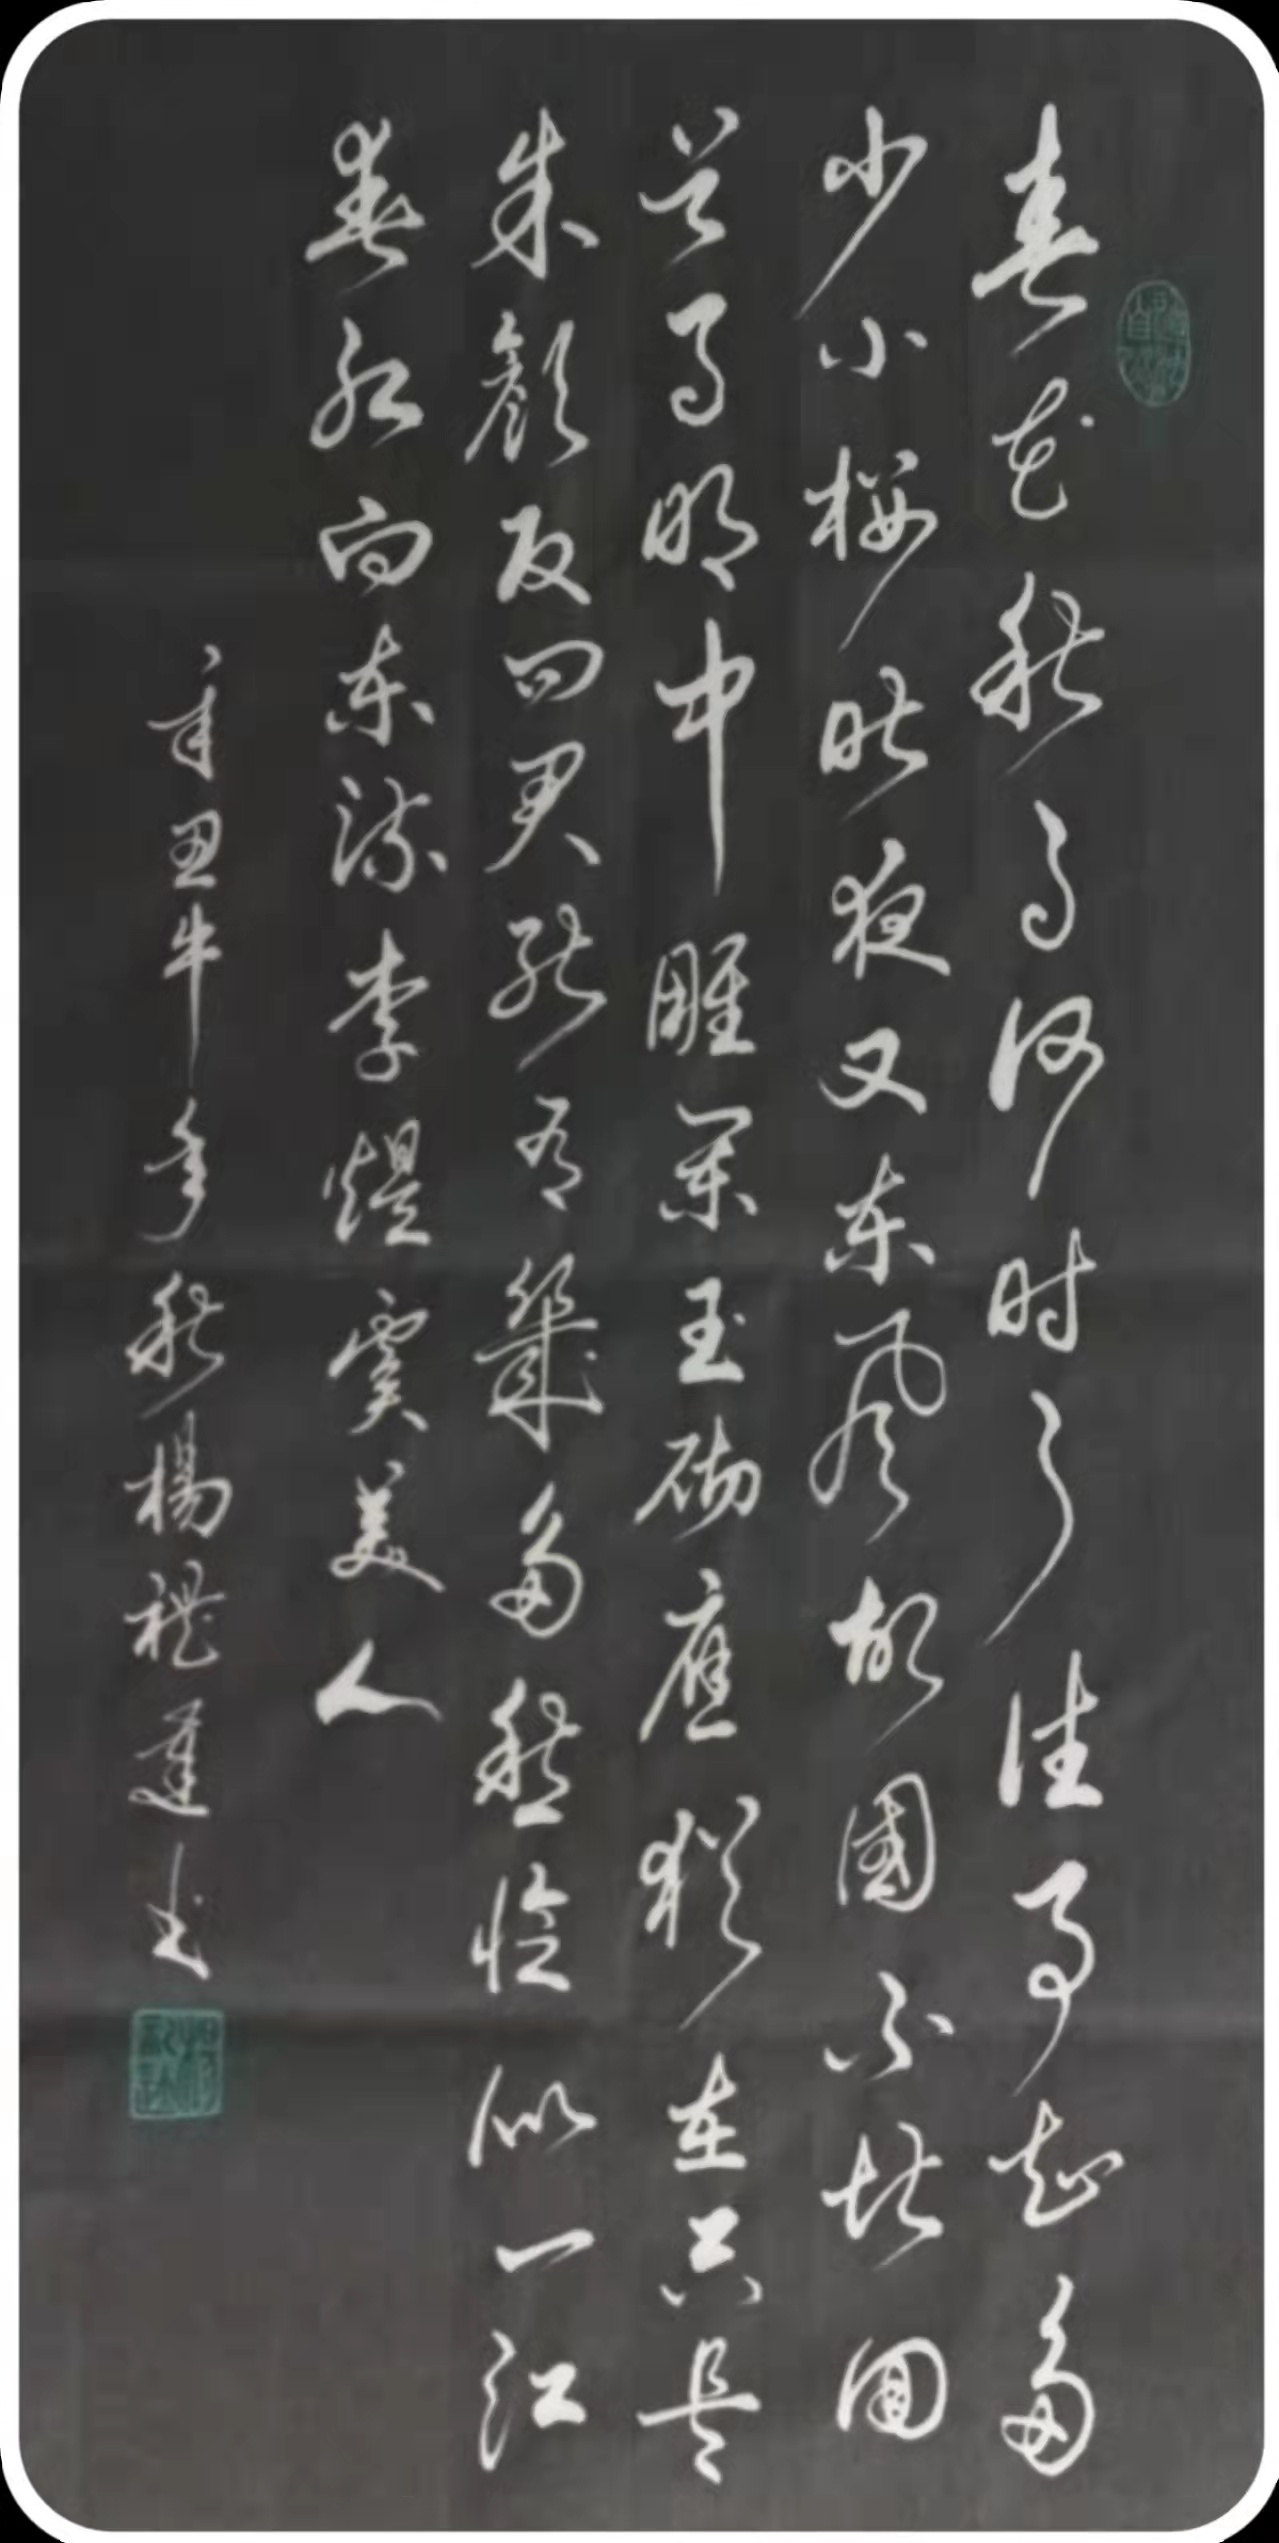 春花秋月何时了往事知多
少小楼昨夜又东风故國不堪回
首月明中雕阑玉砌應猶在只是
朱颜改问君能有幾多愁恰似一江
春水向东流李煜虞美人
辛丑牛年秋楊禮達书